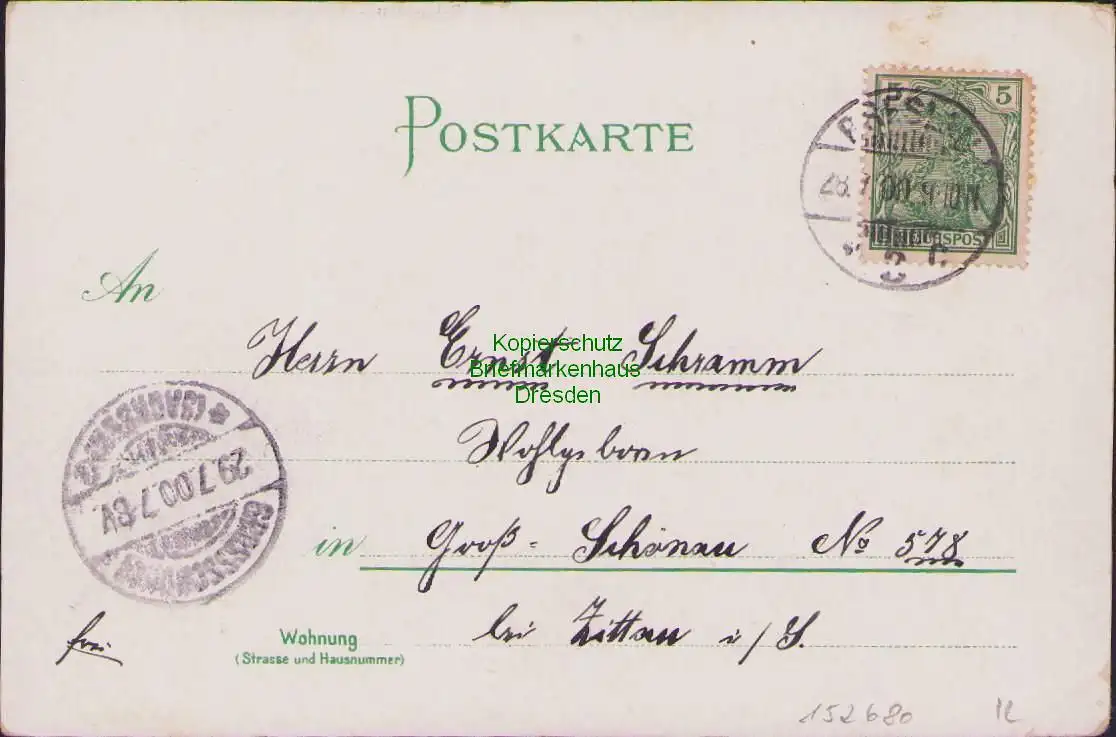 POSTKARTE
5 5
BRESLAU
28.7.00. 9-10 N
REICHSPOST
2 c.
An
Herrn Ernst Schramm
Kopierschutz
Briefmarkenhaus
Dresden
Wohlgeboren
in Groß-Schönau No 578
GROSSSCHÖNAU
29.7.00.7-8V.
(SACHSEN)
bei Zittau i/S.
frei
Wohnung
(Strasse und Hausnummer)
152680